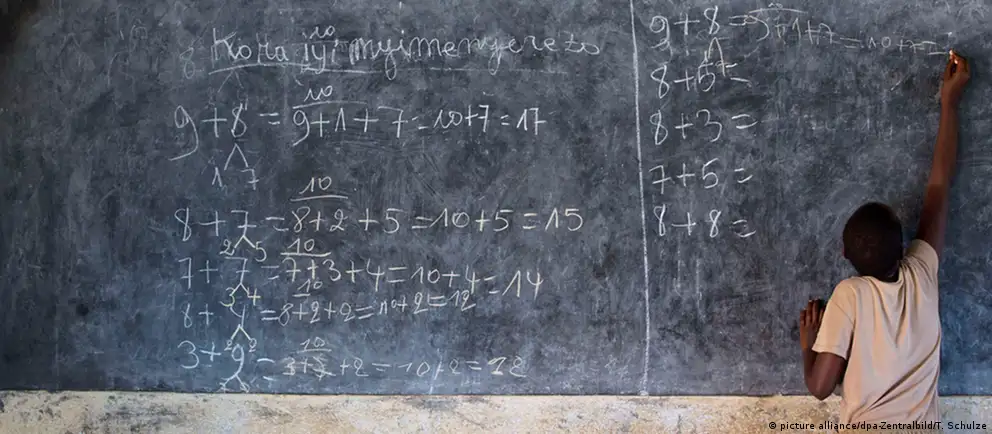 Kora iyi myimenyerezo
10
9+8 = 9+1+7 = 10+7 = 17
1 7
10
8+7 = 8+2+5 = 10+5 = 15
2 5
10
7+7 = 7+3+4 = 10+4 = 14
3 4
10
8+4 = 8+2+2 = 10+2 = 12
2 2
10
3+9 = +2 = 10+2 = 12
9+8 = 9+1+7 = 10+7 =
1 7
8+5 =
8+3 =
7+5 =
8+8 =
© picture alliance/dpa-Zentralbild/T. Schulze